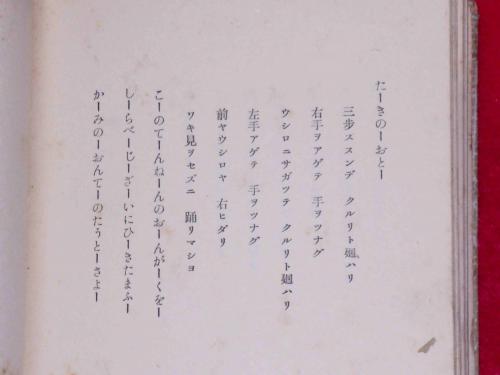 たーきのーおとー
三歩ススンデ クルリト廻ハリ
右手ヲアゲテ 手ヲツナグ
ウシロニサガツテ クルリト廻ハリ
左手アゲテ 手ヲツナグ
前ヤウシロヤ 右ヒダリ
ワキ見ヲセズニ 踊リマシヨ
こーのてーんねーんのおーんがーくをー
しーらべーじーざーいにひーきたまふー
かーみのーおんてーのたうとーさよー